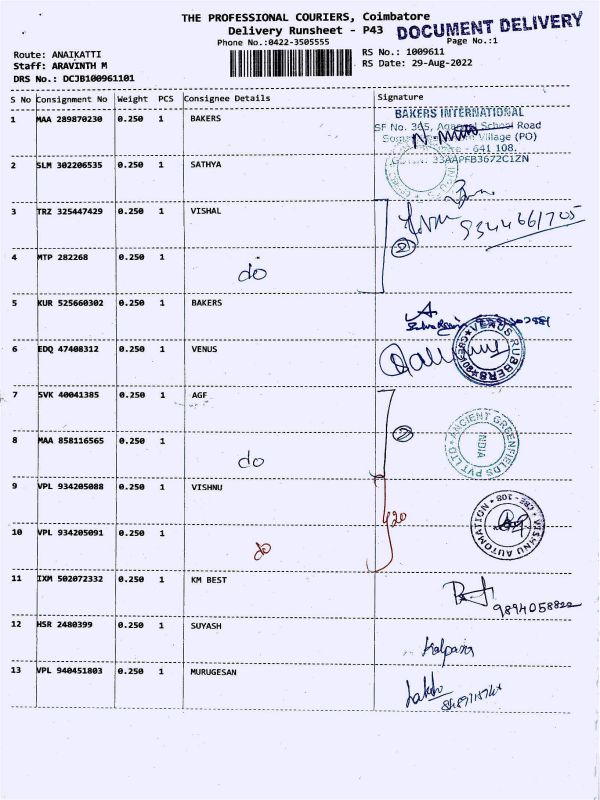 THE PROFESSIONAL COURIERS, Coimbatore
Delivery Runsheet - P43
DOCUMENT DELIVERY
Phone No.:0422-3505555
Page No.:1
Route: ANAIKATTI
RS No.: 1009611
Staff: ARAVINTH M
RS Date: 29-Aug-2022
DRS No.: DCJB100961101
S No Consignment No Weight PCS Consignee Details Signature
1 MAA 289870230 0.250 1 BAKERS
BAKERS INTERNATIONAL
SF No. 365, School Road
Village (PO)
- 641 108.
33AAPFB3672C1ZN
2 SLM 302206535 0.250 1 SATHYA
3 TRZ 325447429 0.250 1 VISHAL
9344661705
2
4 MTP 282268 0.250 1
do
5 KUR 525660302 0.250 1 BAKERS
6 EDQ 47408312 0.250 1 VENUS
VENUS RUBBERS
7 SVK 40041385 0.250 1 AGF
2
ANCIENT GREENFIELDS PVT LTD
INDIA
8 MAA 858116565 0.250 1
do
9 VPL 934205088 0.250 1 VISHNU
VISHNU AUTOMATION * CBE - 108 *
10 VPL 934205091 0.250 1
do
11 IXM 502072332 0.250 1 KM BEST
9894058822
12 HSR 2480399 0.250 1 SUYASH
Kalpana
13 VPL 940451803 0.250 1 MURUGESAN